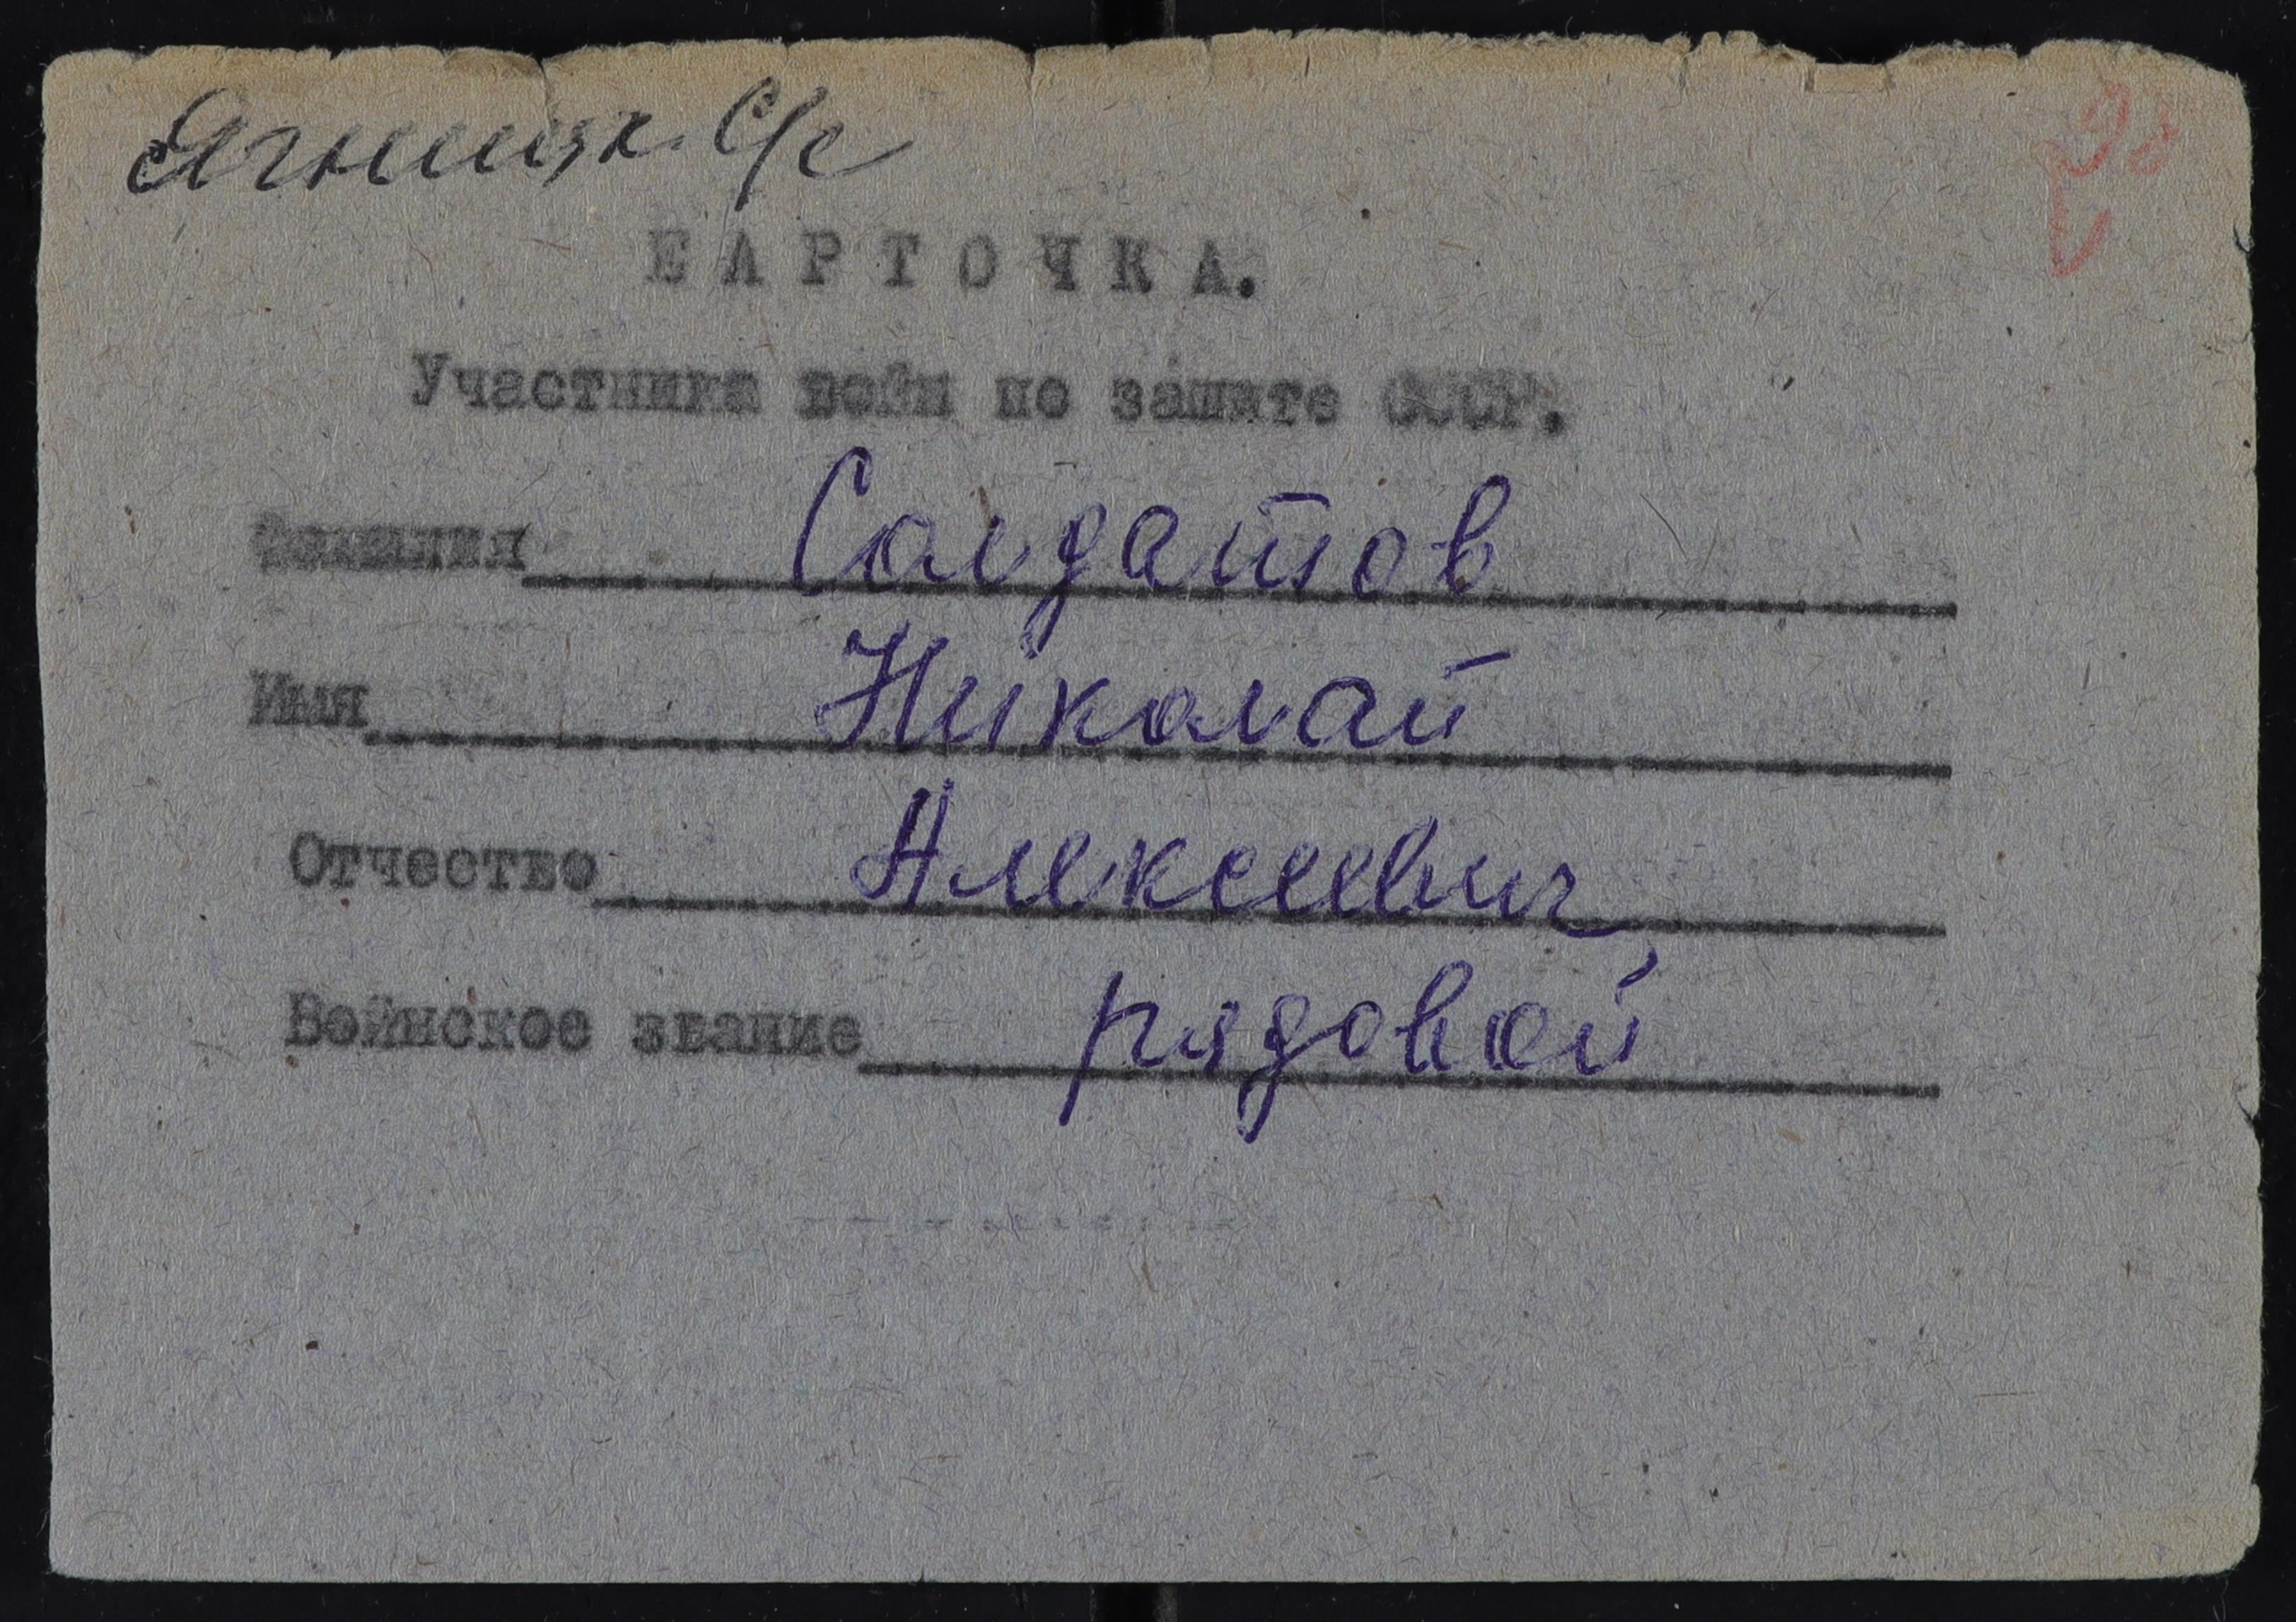 Ягницк. С/с
КАРТОЧКА.
Участника войн по защите СССР.
Фамилия Солдатов
Имя Николай
Отчество Алексеевич
Воинское звание рядовой